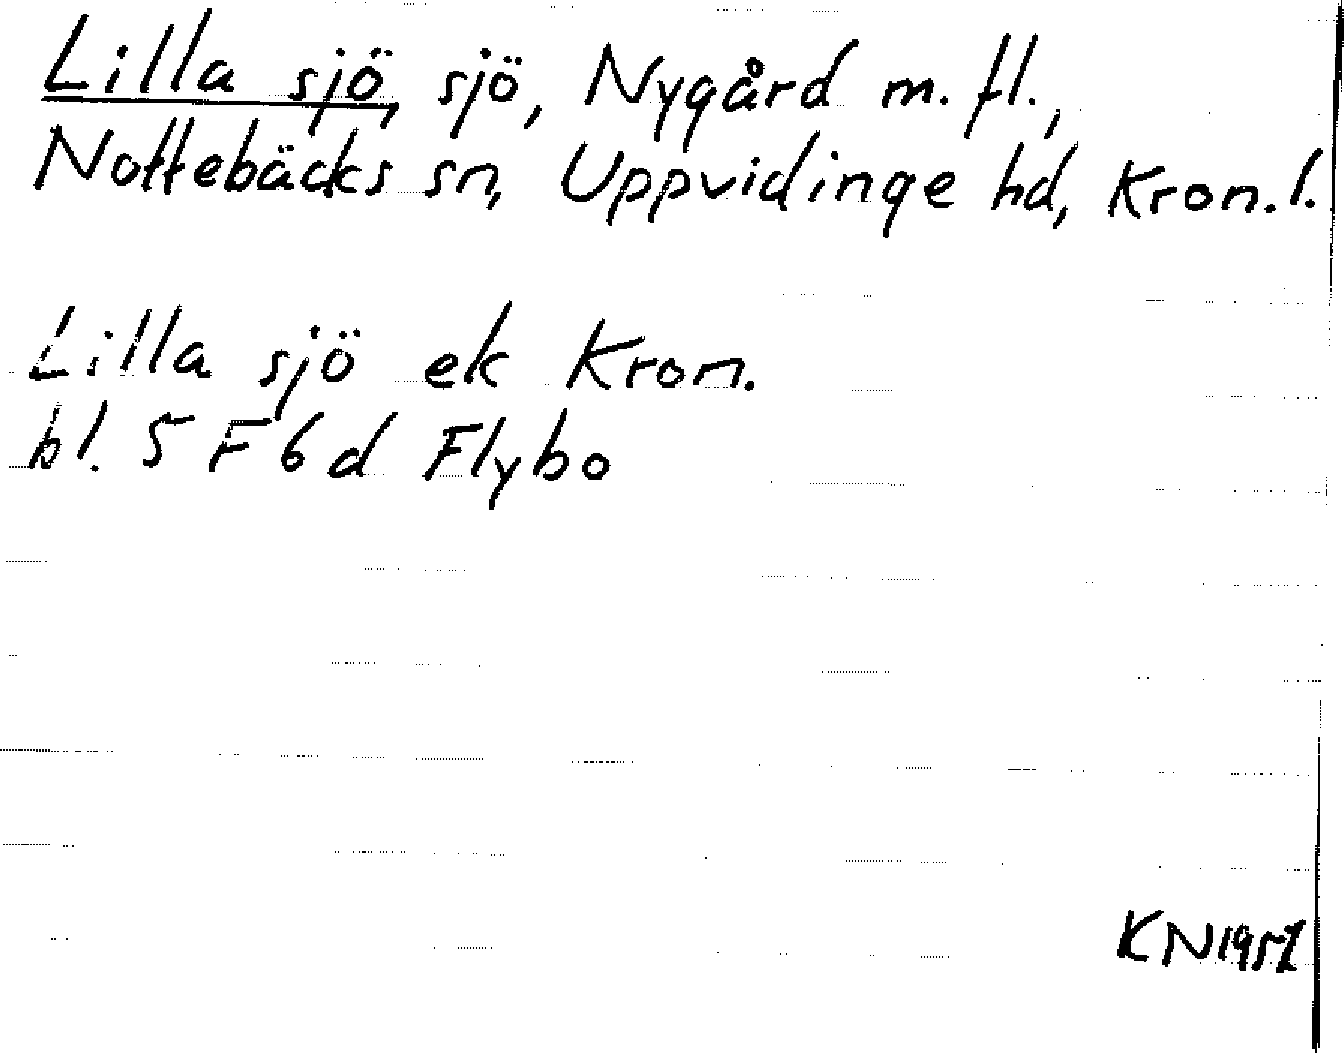 Lilla sjö, sjö, Nygård m. fl.,
Nottebäcks sn, Uppvidinge hd, Kron. l.
Lilla sjö ek Kron.
bl. 5 F 6 d Flybo